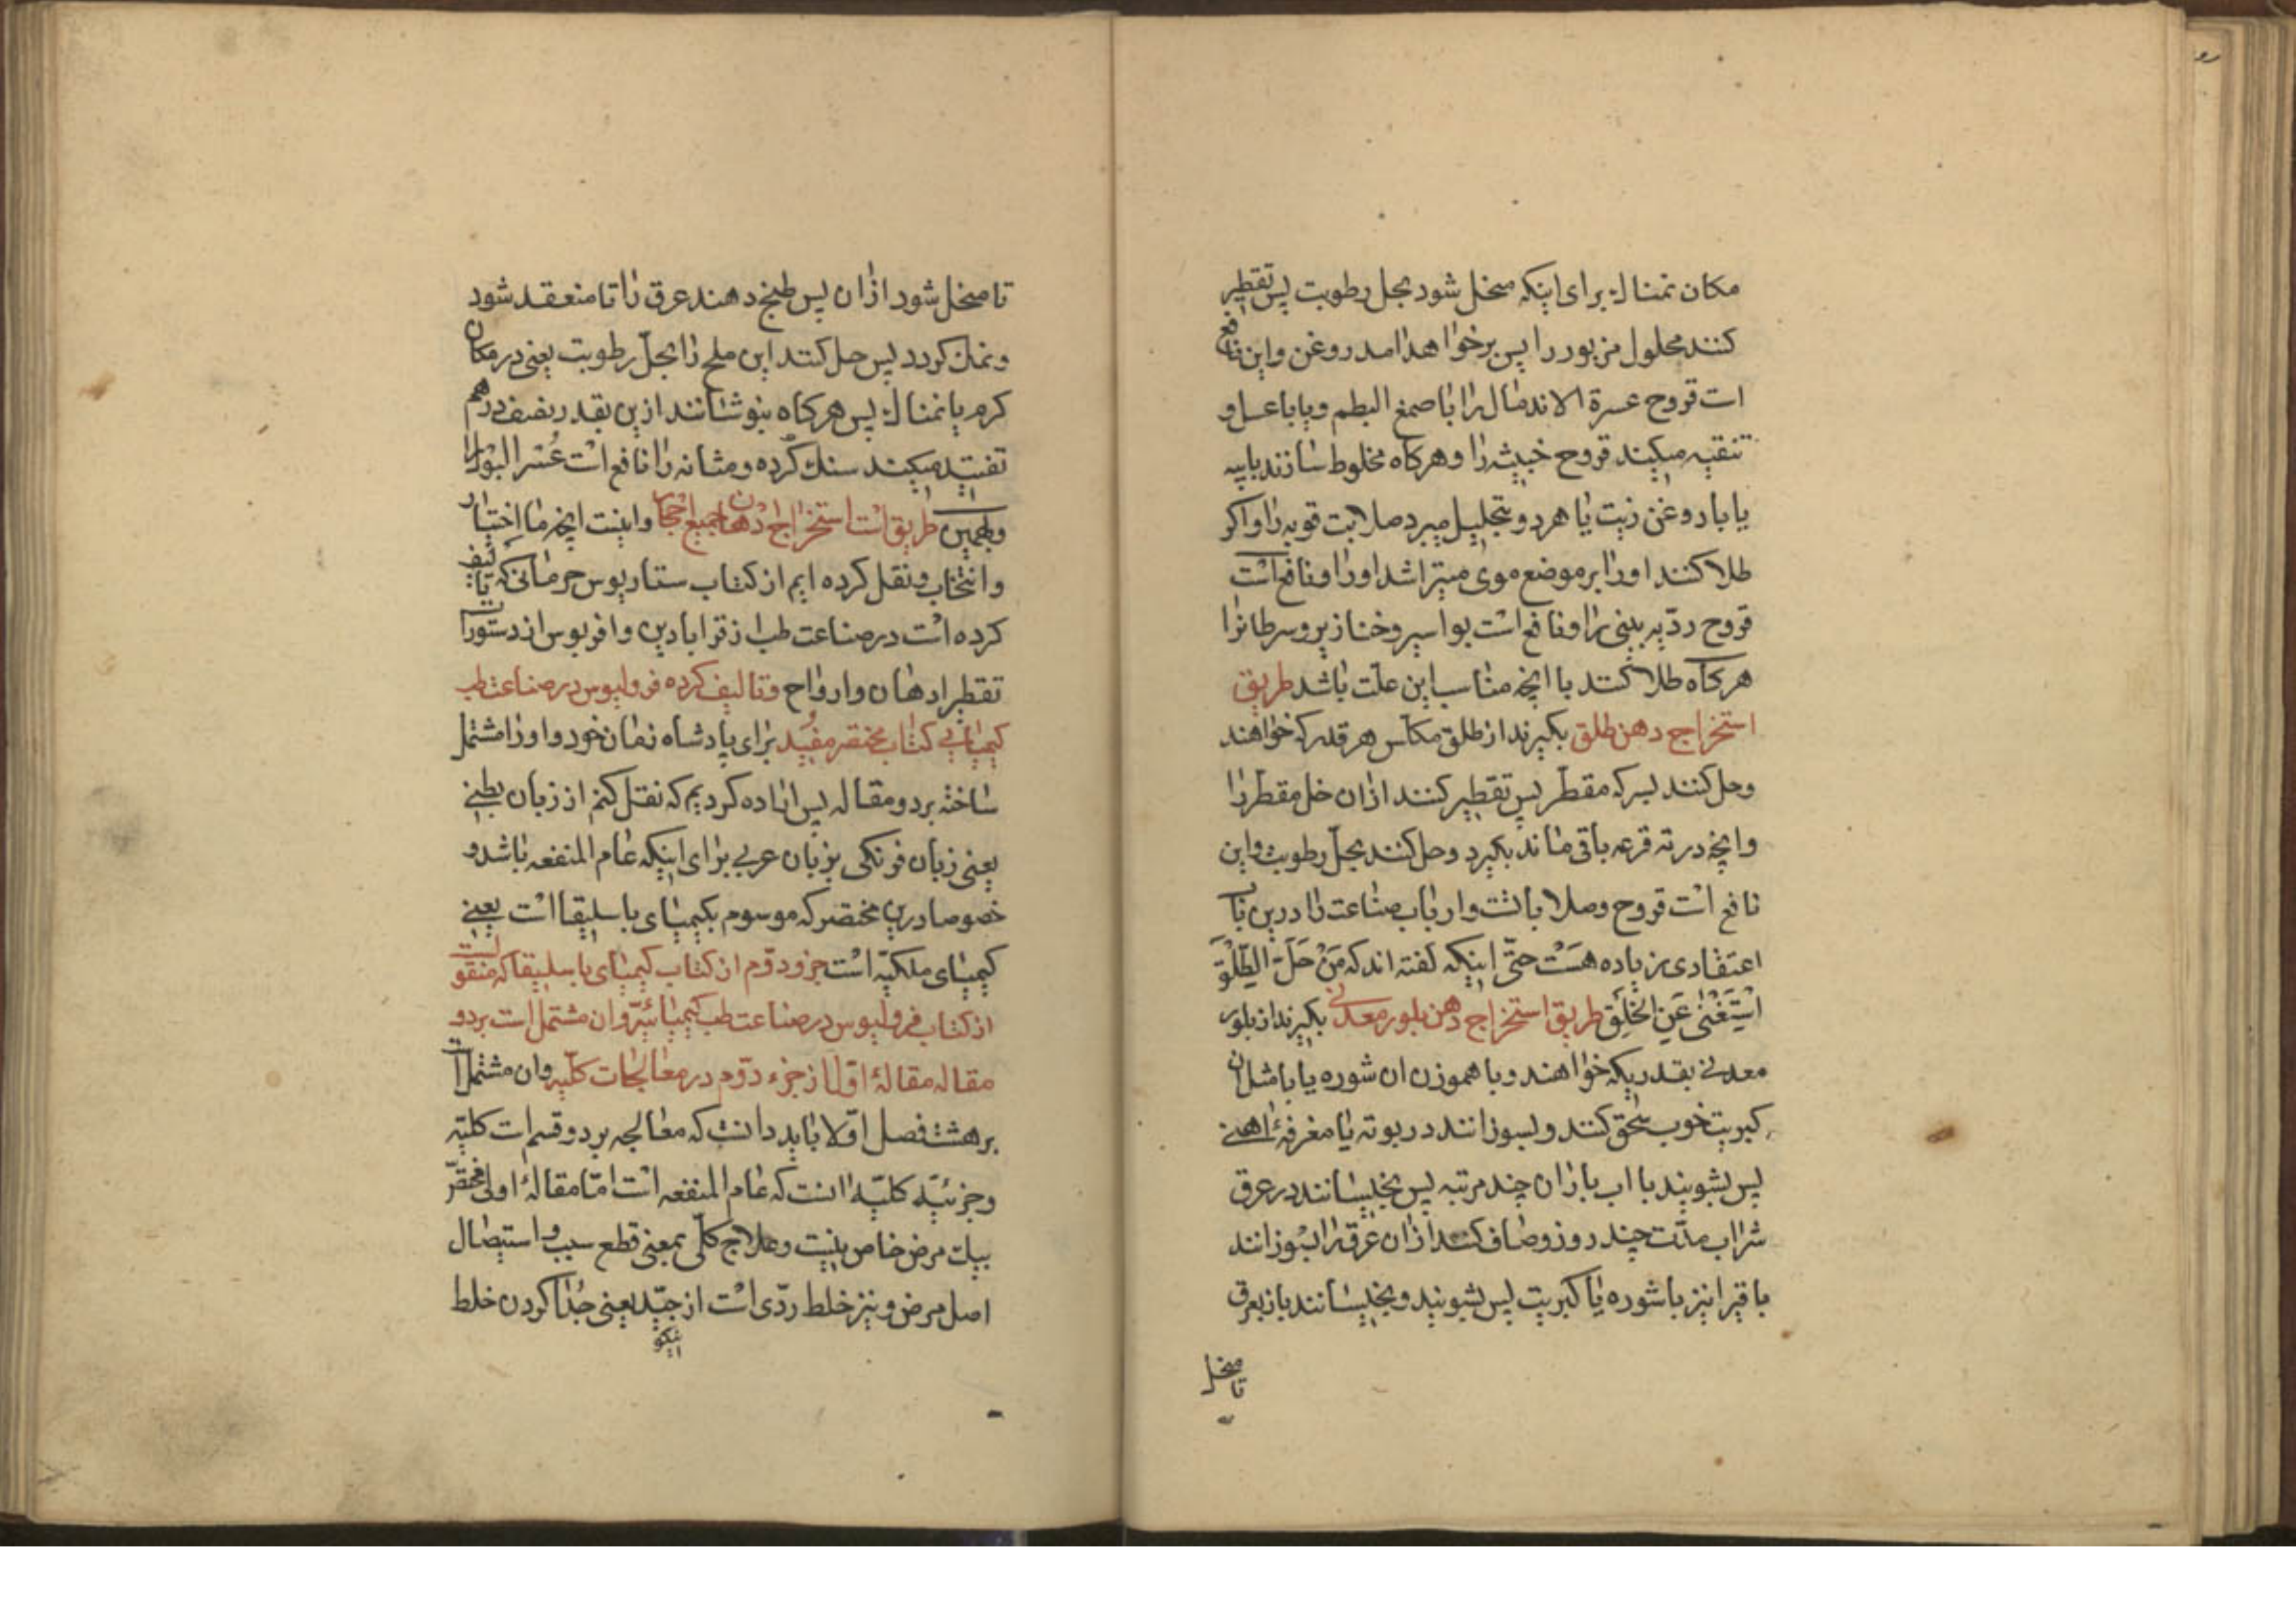 مکان نمناك برای اینکه منحل شود بحل رطوبت پس تقطیر
کنند محلول مزبور را پس برخواهد امد روغن و این نافع
است قروح عسرة الاندمال را با صمغ البطم و یا با عسل و
تنقیه میکند قروح خبیثه را و هرکاه مخلوط سازند با پیه
یا با روغن زیت یا هر دو بتحلیل میبرد صلابت قویه را و اکر
طلا کنند او را بر موضع موی میتراشد او را و نافع است
قروح ردّیه بینی را و نافع است بواسیر و خنازیر و سرطانرا
هرکاه طلا کنند با انچه مناسب این علّت باشد طریق
استخراج دهن طلق بکیرند از طلق مکلس هر قدر که خواهند
و حل کنند بسرکه مقطّر پس تقطیر کنند ازان خل مقطّر را
و انچه در ته قرعه باقی ماند بکیرد و حل کنند بحلّ رطوبت و این
نافع است قروح و صلابات و ارباب صناعت را درین باب
اعتقادی زیاده هَست حتّی اینکه کفته اند که مَنْ حَلَّ الطَّلْقَ
اسْتَغْنٰی عَنِ الخَلِق طریق استخراج دهن بلور معدنی بکیرند از بلور
معدنی بقدریکه خواهند و با هموزن ان شوره یا با مثل ان
کبریت خوب سحق کنند و بسوزانند در بوته یا مغرفهٔ اهنی
پس بشویند با اب باران چند مرتبه پس بخیسانند در عرق
شراب مدّت چند روز و صاف کنند ازان عرق را بسوزانند
باقی را نیز با شوره یا کبریت پس بشویند و بخیسانند باز بعرق
تا منحل
تا منحل شود ازان پس طبخ دهند عرق را تا منعقد شود
و نمك کردد پس حل کنند این ملح را بحلّ رطوبت یعنی در مکان
کرم یا نمناك پس هرکاه بنوشانند ازین بقدر نصف درهم
تفتید میکند سنك کرده و مثانه را نافع است عُسر البول را
و بهمین طریق است استخراج دهان جمیع احجار و اینست انچه ما اختیار
و انتخاب و نقل کرده ایم از کتاب ستاریوس جرمانی که تالیف
کرده است در صناعت طب از قرابادین و افریوس از دستورات
تقطیر ادهان و ارواح و تالیف کرده فرولیوس در صناعت طب
کیمیایی کتاب مختصر مفید برای پادشاه زمان خود و او را مشتمل
ساخته بر دو مقاله پس اراده کردیم که نقل کنم از زبان لطینی
یعنی زبان فرنکی بزبان عربی برای اینکه عام المنفعه باشد و
خصوصا درین مختصر که موسوم بکیمیای باسلیقا است یعنی
کیمیای ملکیّه است جزو دوّم از کتاب کیمیای باسلیقا که منقولست
از کتاب فرولیوس در صناعت طب کیمیائیّه و ان مشتمل است بر دو
مقاله مقالهٔ اوّل از جزء دوّم در معالجات کلّیه و ان مشتمل است
بر هشت فصل اوّلا باید دانست که معالجه بر دو قسم است کلیّه
و جزئیّه کلیّه انست که عام المنفعه است امّا مقالهٔ اولی مختصرّ
بیك مرض خاص نیست و علاج کلّی بمعنی قطع سبب و استیصال
اصل مرض و نیز خلط ردّی است از جیّد یعنی جُدا کردن خلط
نیکو